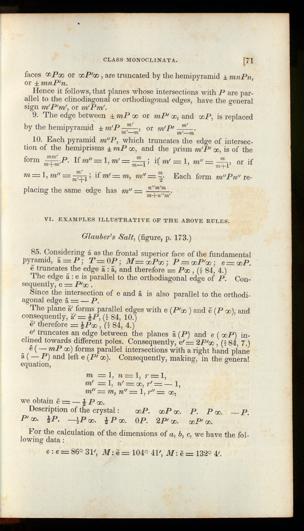 CLASS MONOCLINATA. [71
faces ∞P∞ or ∞P'∞, are truncated by the hemipyramid ± mnPn,
or ± mnP'n.
Hence it follows, that planes whose intersections with P are par-
allel to the clinodiagonal or orthodiagonal edges, have the general
sign m'P'm', or m'Pm'.
9. The edge between ± mP ∞ or mP' ∞, and ∞P, is replaced
by the hemipyramid ± m'P m'/m'—m, or m'P' m'/m'—m.
10. Each pyramid m''P, which truncates the edge of intersec-
tion of the hemiprisms ± mP ∞, and the prism m'P' ∞, is of the
form mm'/m+m' P. If m''=1, m' = m/m—1; if m'=1, m'' = m/m+1, or if
m=1, m''= m'/m'+1; if m'=m, m''= m/2. Each form m''Pn'' re-
placing the same edge has m'' = n''m'm/m+n''m'.
VI. EXAMPLES ILLUSTRATIVE OF THE ABOVE RULES.
Glauber's Salt, (figure, p. 173.)
85. Considering
as the frontal superior face of the fundamental
pyramid,
= P; T = 0P; M = ∞P∞; P = ∞P'∞; e = ∞P.
truncates the edge
and therefore = P∞, (§ 84, 4.)
The edge
is parallel to the orthodiagonal edge of P. Con-
sequently, e = P'∞.
Since the intersection of e and
is also parallel to the orthodi-
agonal edge
= — P.
The plane
forms parallel edges with e (P'∞) and
(P ∞), and
consequently,
= ½P, (§ 84, 10.)
therefore = ½P∞, (§ 84, 4.)
e' truncates an edge between the planes
(P) and e (∞P) in-
clined towards different poles. Consequently, e' = 2P'∞, (§ 84, 7.)
(— mP ∞) forms parallel intersections with a right hand plane
(— P) and left e (P' ∞). Consequently, making, in the general
equation,
m = 1, n = 1, r = 1,
m' = 1, n' = ∞, r' = — 1,
m'' = m, n'' = 1, r'' = ∞,
we obtain
= — ½ P ∞.
Description of the crystal: ∞P. ∞P ∞. P. P ∞. — P.
P' ∞. ½P. —½P ∞. ½P ∞. 0P. 2P' ∞. ∞P' ∞.
For the calculation of the dimensions of a, b, c, we have the fol-
lowing data:
e : e = 86° 31', M : ë = 104° 41', M : ë = 132° 4'.